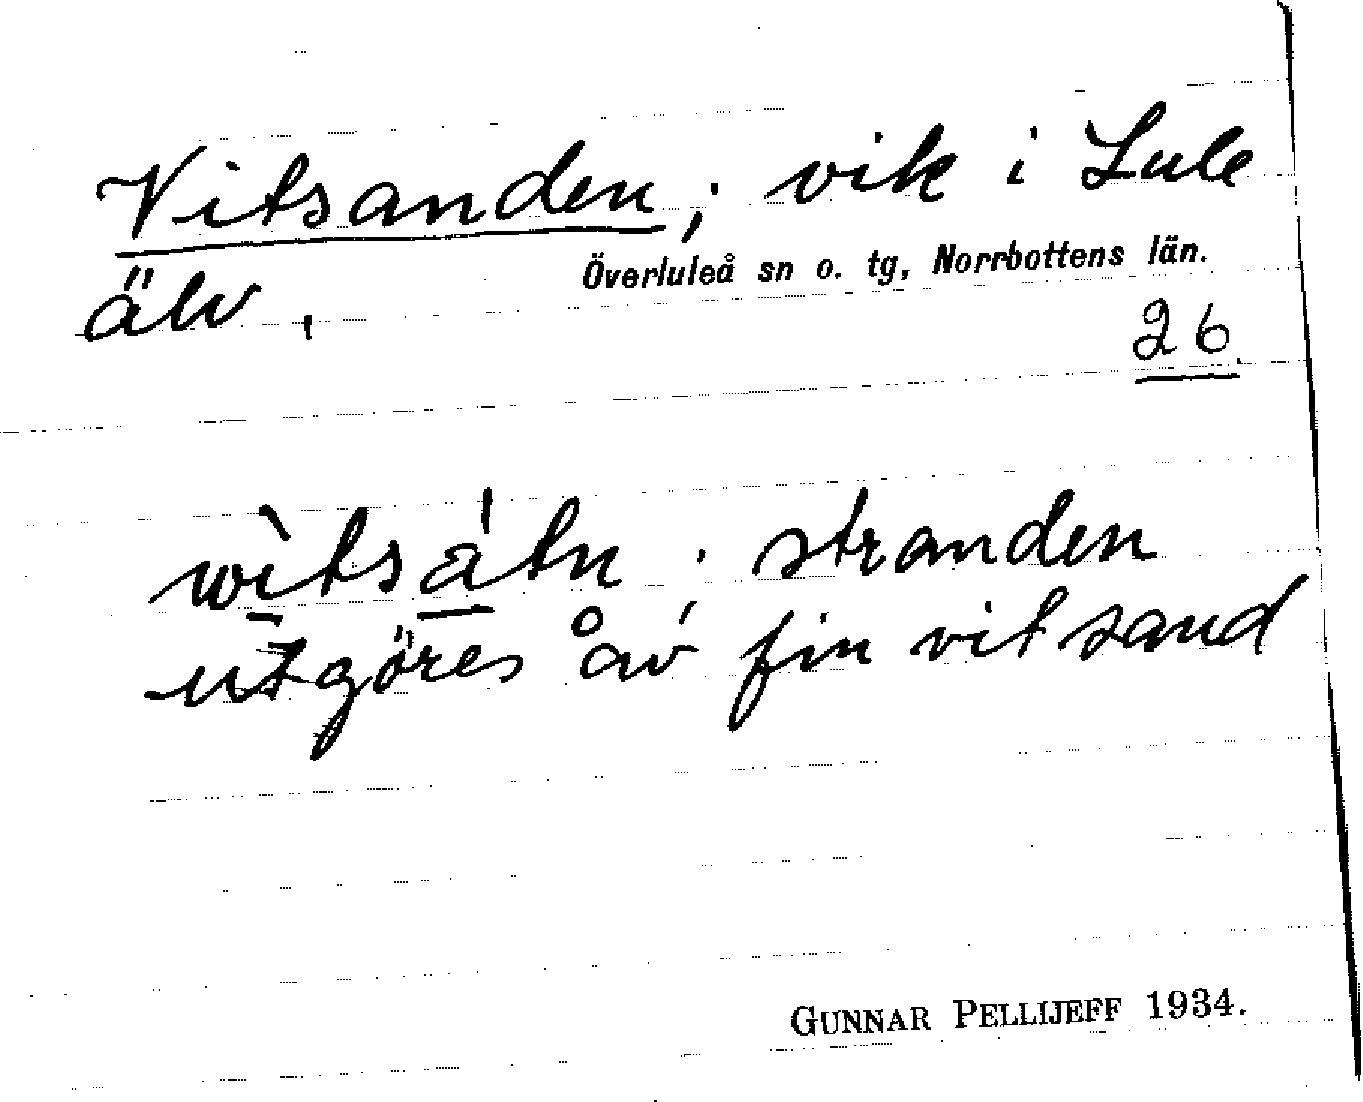 Vitsanden; vik i Lule
Överluleå sn o. tg, Norrbottens län.
älv.
26
wìtsátn; stranden
utgöres av fin vit sand
GUNNAR PELLIJEFF 1934.